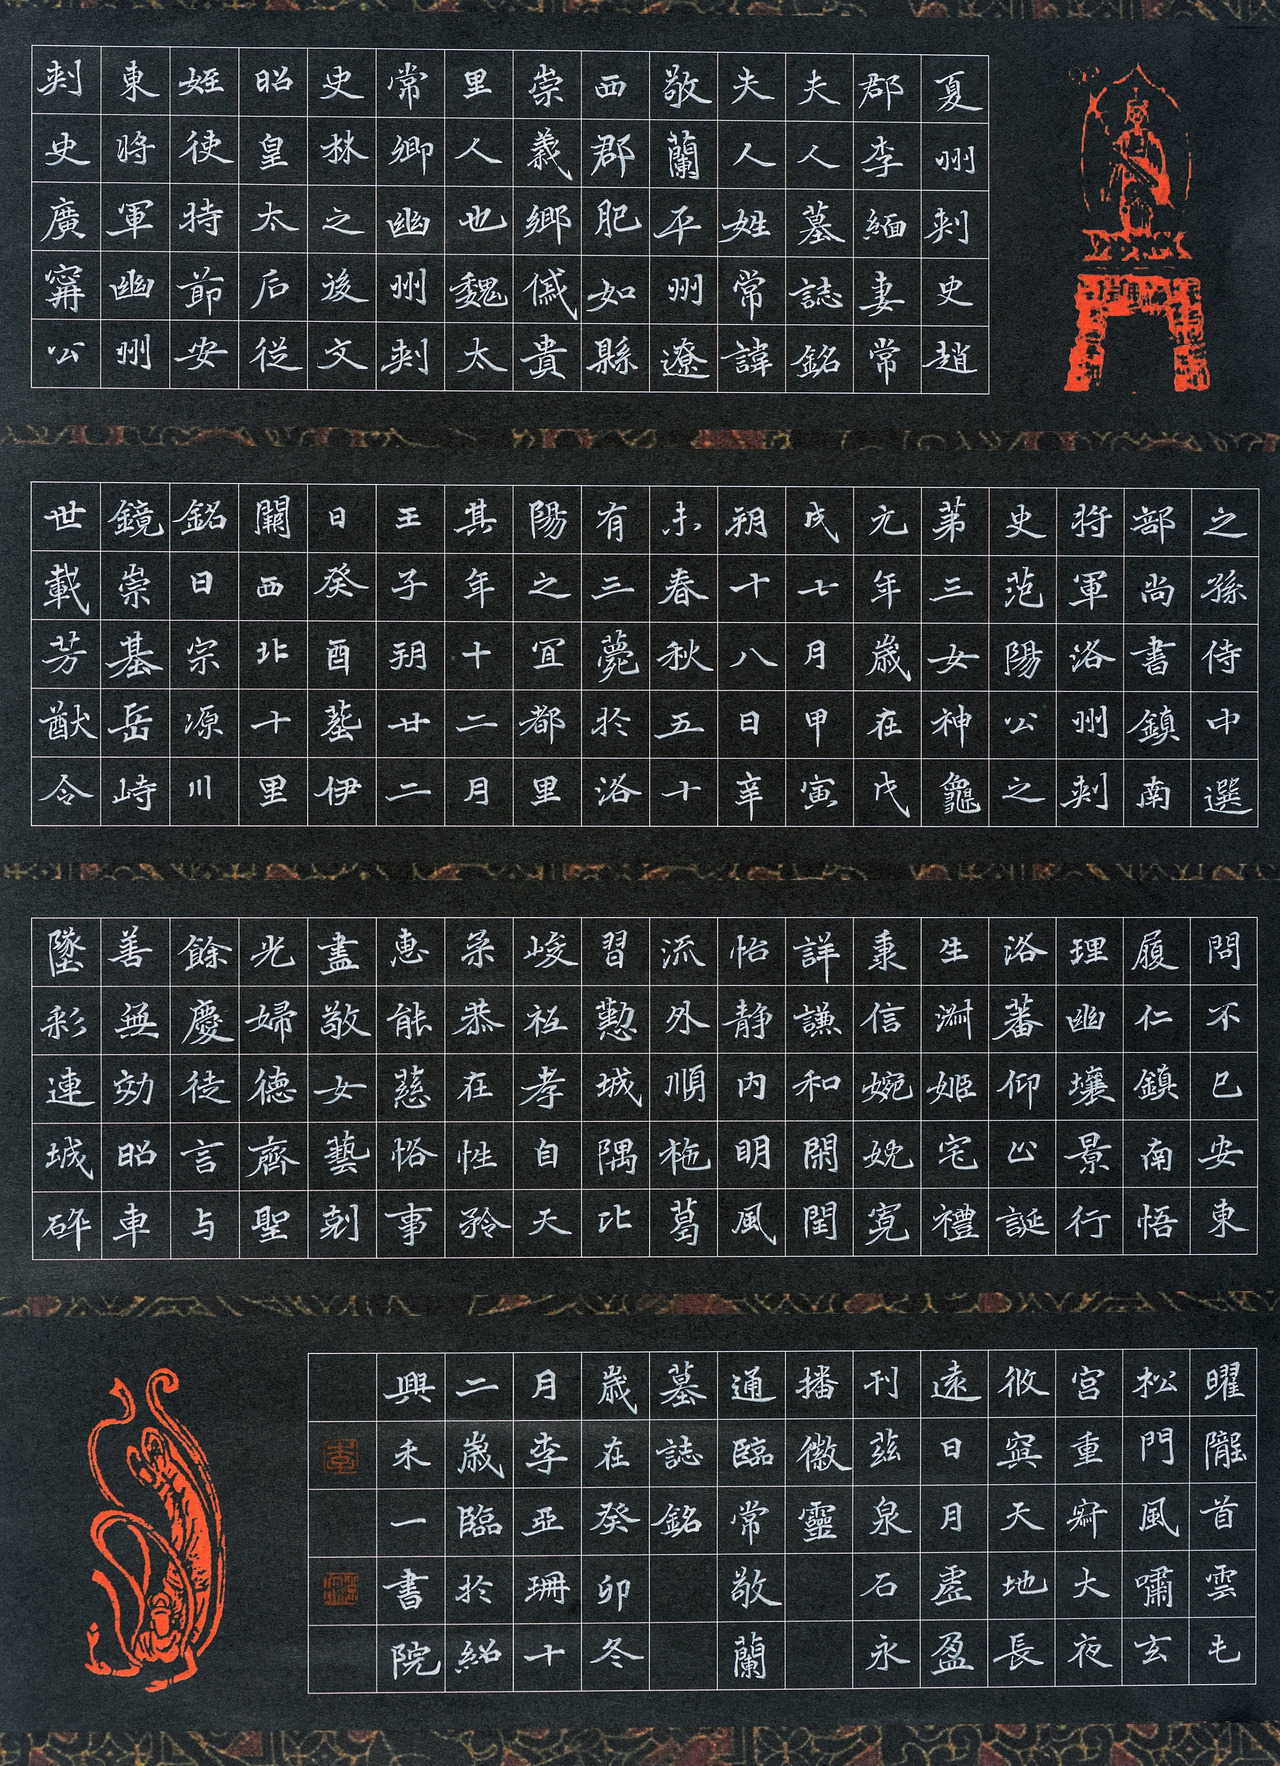 夏州刺史趙
郡李緬妻常
夫人墓誌銘
夫人姓常諱
敬蘭平州遼
西郡肥如縣
崇義鄉傶貴
里人也魏太
常卿幽州刺
史林之後文
昭皇太后從
姪使持節安
東將軍幽州
刺史廣甯公
之孫侍中選
部尚書鎮南
將軍洛州刺
史范陽公之
第三女神龜
元年歲在戊
戌七月甲寅
朔十八日辛
未春秋五十
有三薨於洛
陽之宜都里
其年十二月
王子朔廿二
日癸酉葬伊
闕西北十里
銘曰宗源川
鏡崇基岳峙
世載芳猷令
問不已安東
履仁鎮南悟
理幽壤景行
洛蕃仰止誕
生淵姬宅禮
秉信婉娩寬
詳謙和閑閨
怡靜內明風
流外順柂葛
習懃城隅比
峻祗孝自天
柔恭在性矜
惠能慈恪事
盡敬女藝剋
光婦德齊聖
餘慶徒言与
善無効昭車
墜彩連城碎
曜隴首雲屯
松門風嘯玄
宮重寂大夜
攸冥天地長
遠日月虛盈
刊茲泉石永
播徽靈
通臨常敬蘭
墓誌銘
歲在癸卯冬
月李亞珊十
二歲臨於紹
興禾一書院